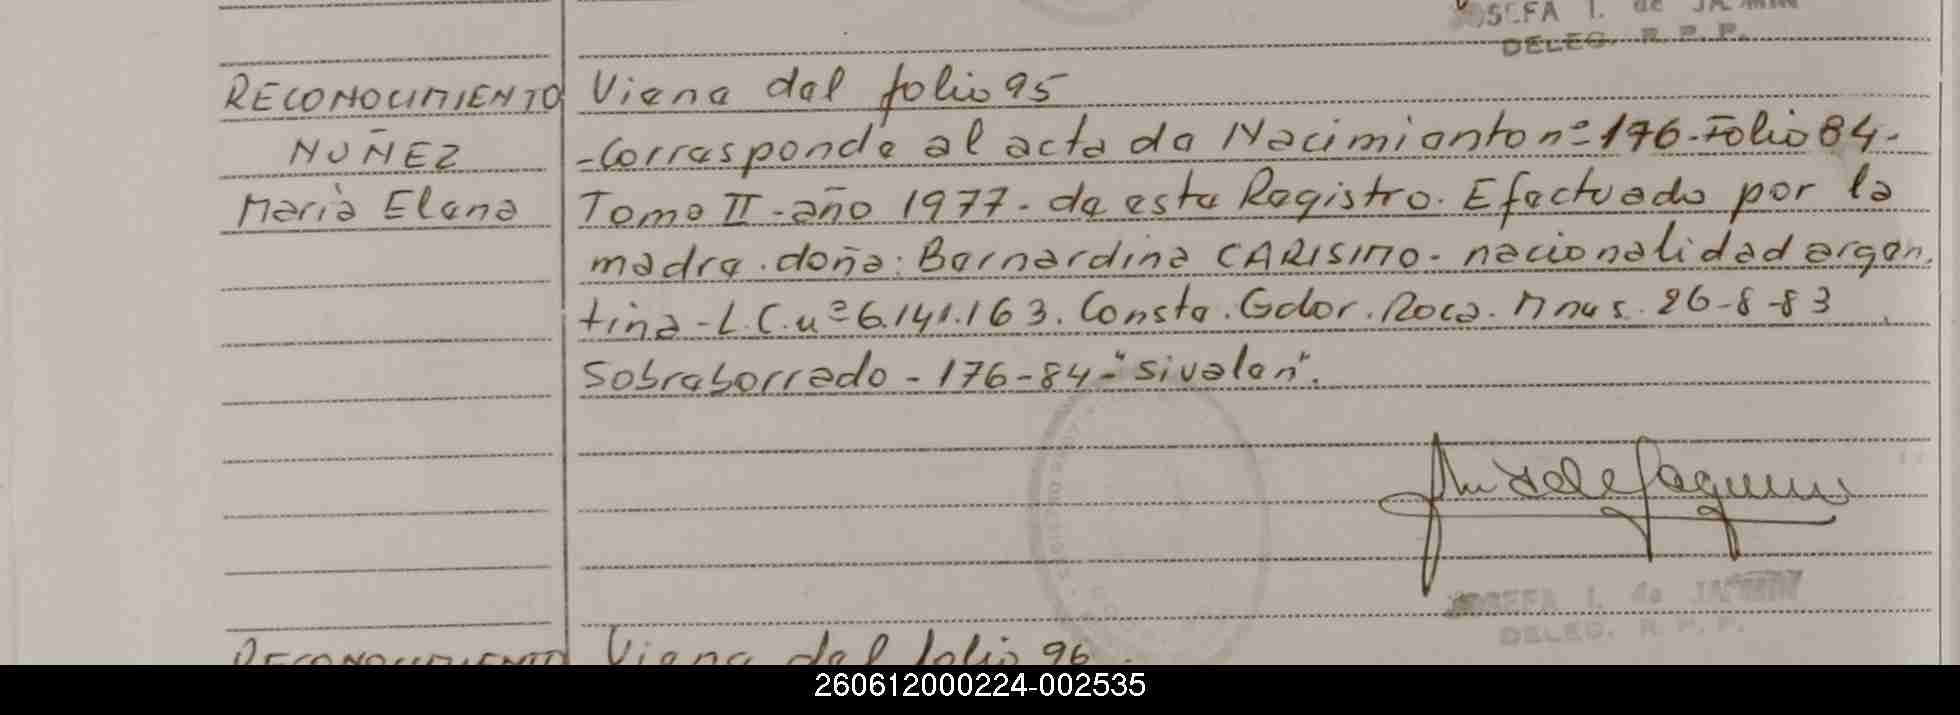 DELEG. R. P. P.
RECONOCIMIENTO
NUÑEZ
Maria Elena
Viene del folio 95
-Corresponde al acta de Nacimiento nº 176-Folio 84-
Tomo II-año 1977- de este Registro. Efectuado por la
madre. doña: Bernardina CARISIMO- nacionalidad argen
tina-L.C.nº 6.141.163. Conste. Gdor. Roca. Mnes. 26-8-83
Sobreborrado - 176-84-"sivalen".
JOSEFA I. de
DELEG. R. P. P.
RECONOCIMIENTO
Viene del folio 96.
260612000224-002535